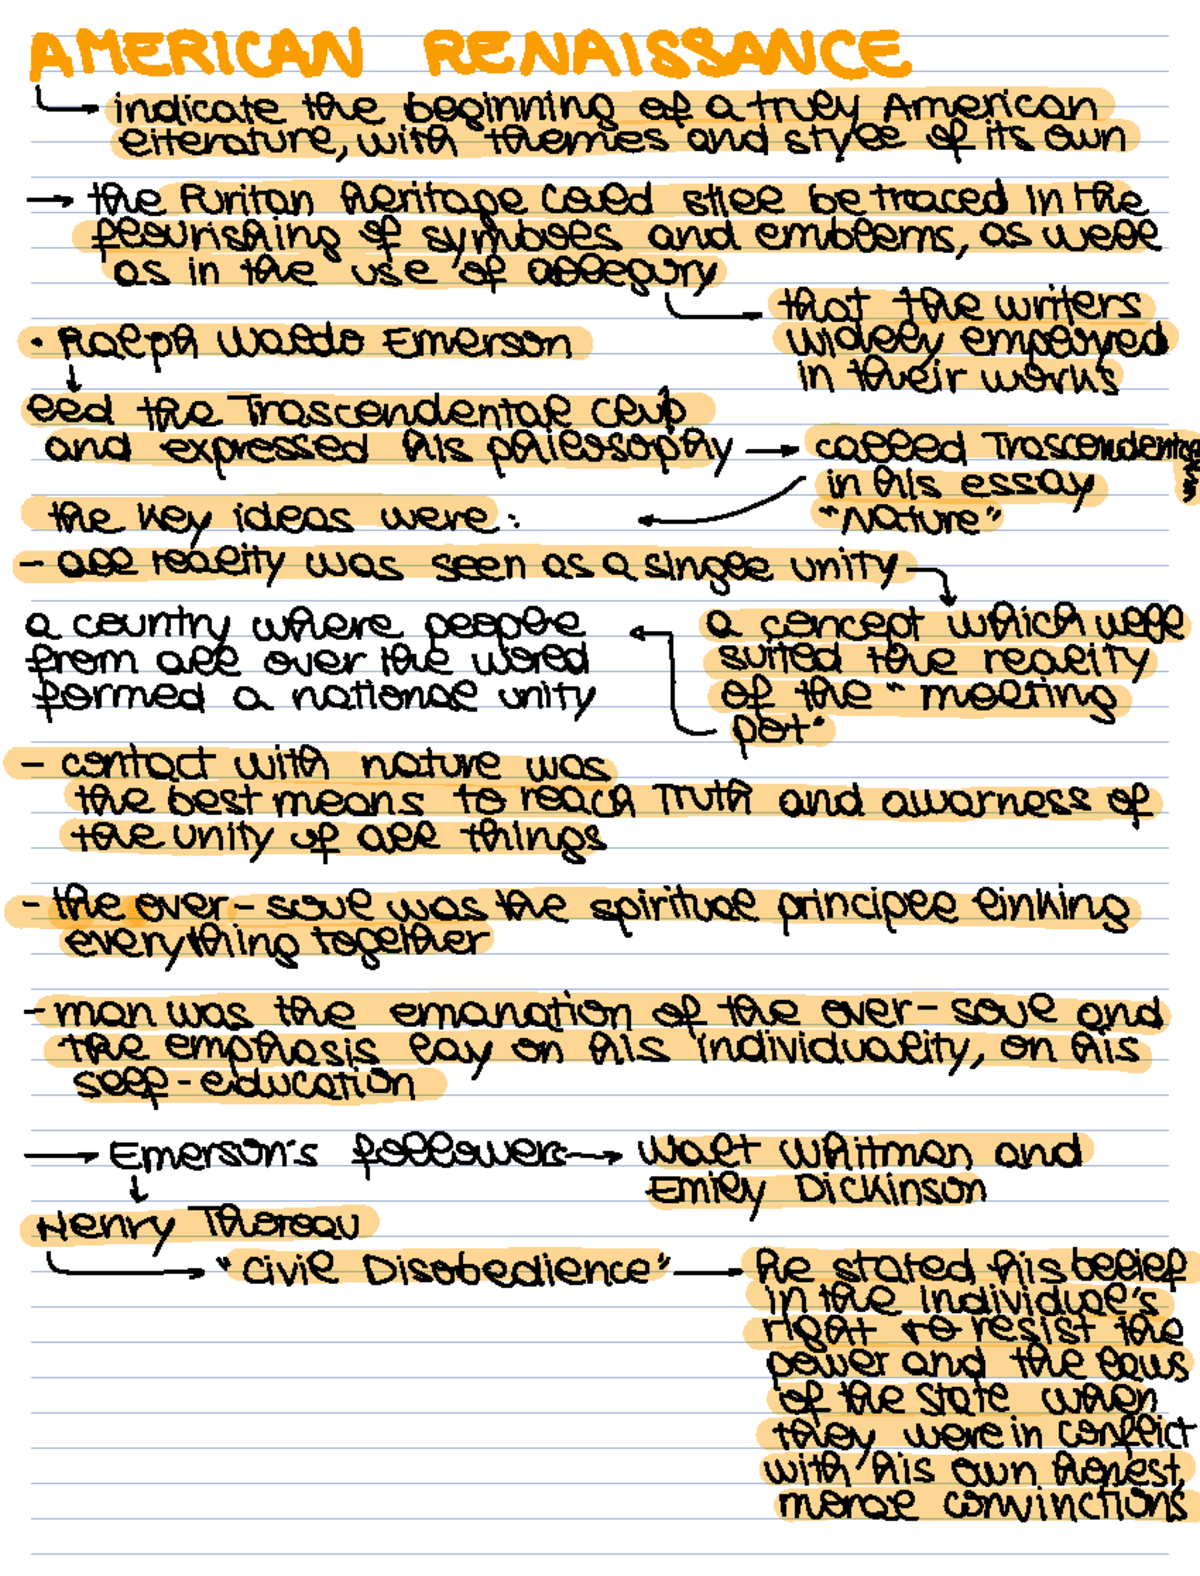 AMERICAN RENAISSANCE
indicate the beginning of a truly American
literature, with themes and style of its own
→ the Puritan heritage could still be traced in the
flourishing of symbols and emblems, as well
as in the use of allegory
that the writers
widely employed
in their works
• Ralph Waldo Emerson
led the Trascendental Club
and expressed his philosophy → called Trascendentalism
in his essay
"Nature"
the key ideas were:
- all reality was seen as a single unity
a concept which well
suited the reality
of the "melting
pot"
a country where people
from all over the world
formed a national unity
- contact with nature was
the best means to reach Truth and awarness of
the unity of all things
- the over-soul was the spiritual principle linking
everything together
- man was the emanation of the over-soul and
the emphasis lay on his individuality, on his
self-education
→ Emerson's followers → Walt Whitman and
Emily Dickinson
Henry Thoreau
"Civil Disobedience" → he stated his belief
in the individual's
right to resist the
power and the laws
of the state when
they were in conflict
with his own honest,
moral convinctions